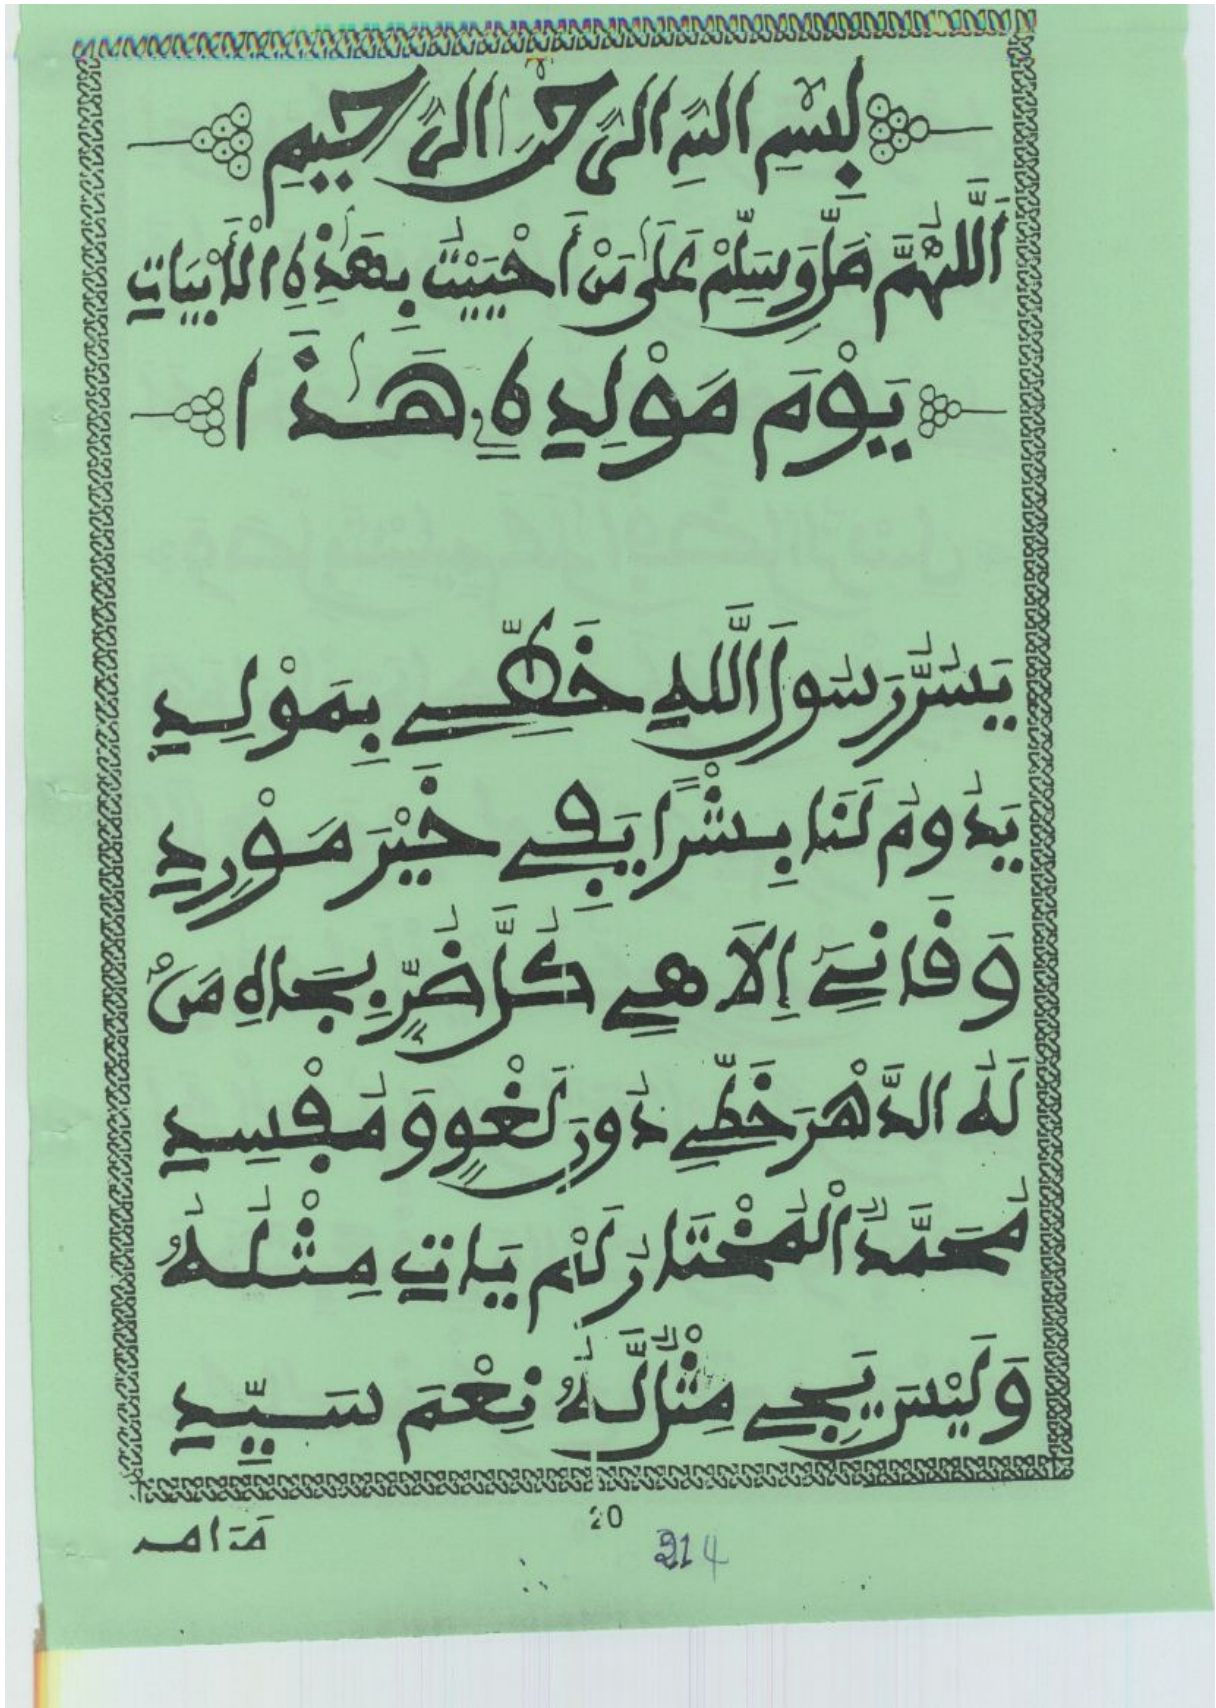 بِسْمِ اللهِ الرَّحْمٰنِ الرَّحِيمِ
اَللَّهُمَّ صَلِّ وَسَلِّمْ عَلَى مَنْ أَحْيَيْتُ بِهَذِهِ الْأَبْيَاتِ
يَوْمَ مَوْلِدِهِ هَذَا
يَسُرُّ رَسُولَ اللَّهِ خَطِّي بِمَوْلِدِ
يَدُومُ لَنَا بِشْرًا يَفِي خَيْرَ مَوْرِدِ
وَقَانِيَ إِلَاهِي كُلَّ ضُرٍّ بِجَاهِ مَنْ
لَهُ الدَّهْرَ خَطِّي دُونَ لَغْوٍ وَمُفْسِدِ
مُحَمَّدٌ الْمُخْتَارُ لَمْ يَاتِ مِثْلُهُ
وَلَيْسَ يَجِي مِثْلٌ لَّهُ نِعْمَ سَيِّدِ
20
214